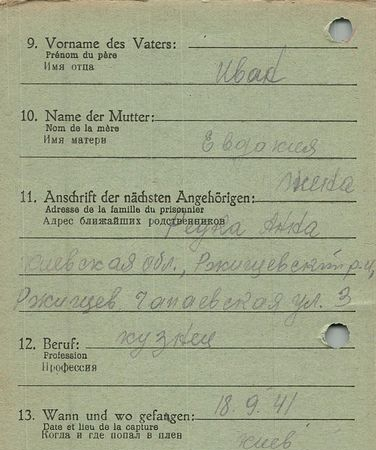 9. Vorname des Vaters:
Prénom du père
Имя отца
Иван
10. Name der Mutter:
Nom de la mère
Имя матери
Евдокия
жена
11. Anschrift der nächsten Angehörigen:
Adresse de la famille du prisonnier
Адрес ближайших родственников
Анна
киевская обл., Ржищевский р-н,
Ржищев Чапаевская ул. 3
12. Beruf:
Profession
Профессия
13. Wann und wo gefangen:
18.9.41
Date et lieu de la capture
Когда и где попал в плен
киев